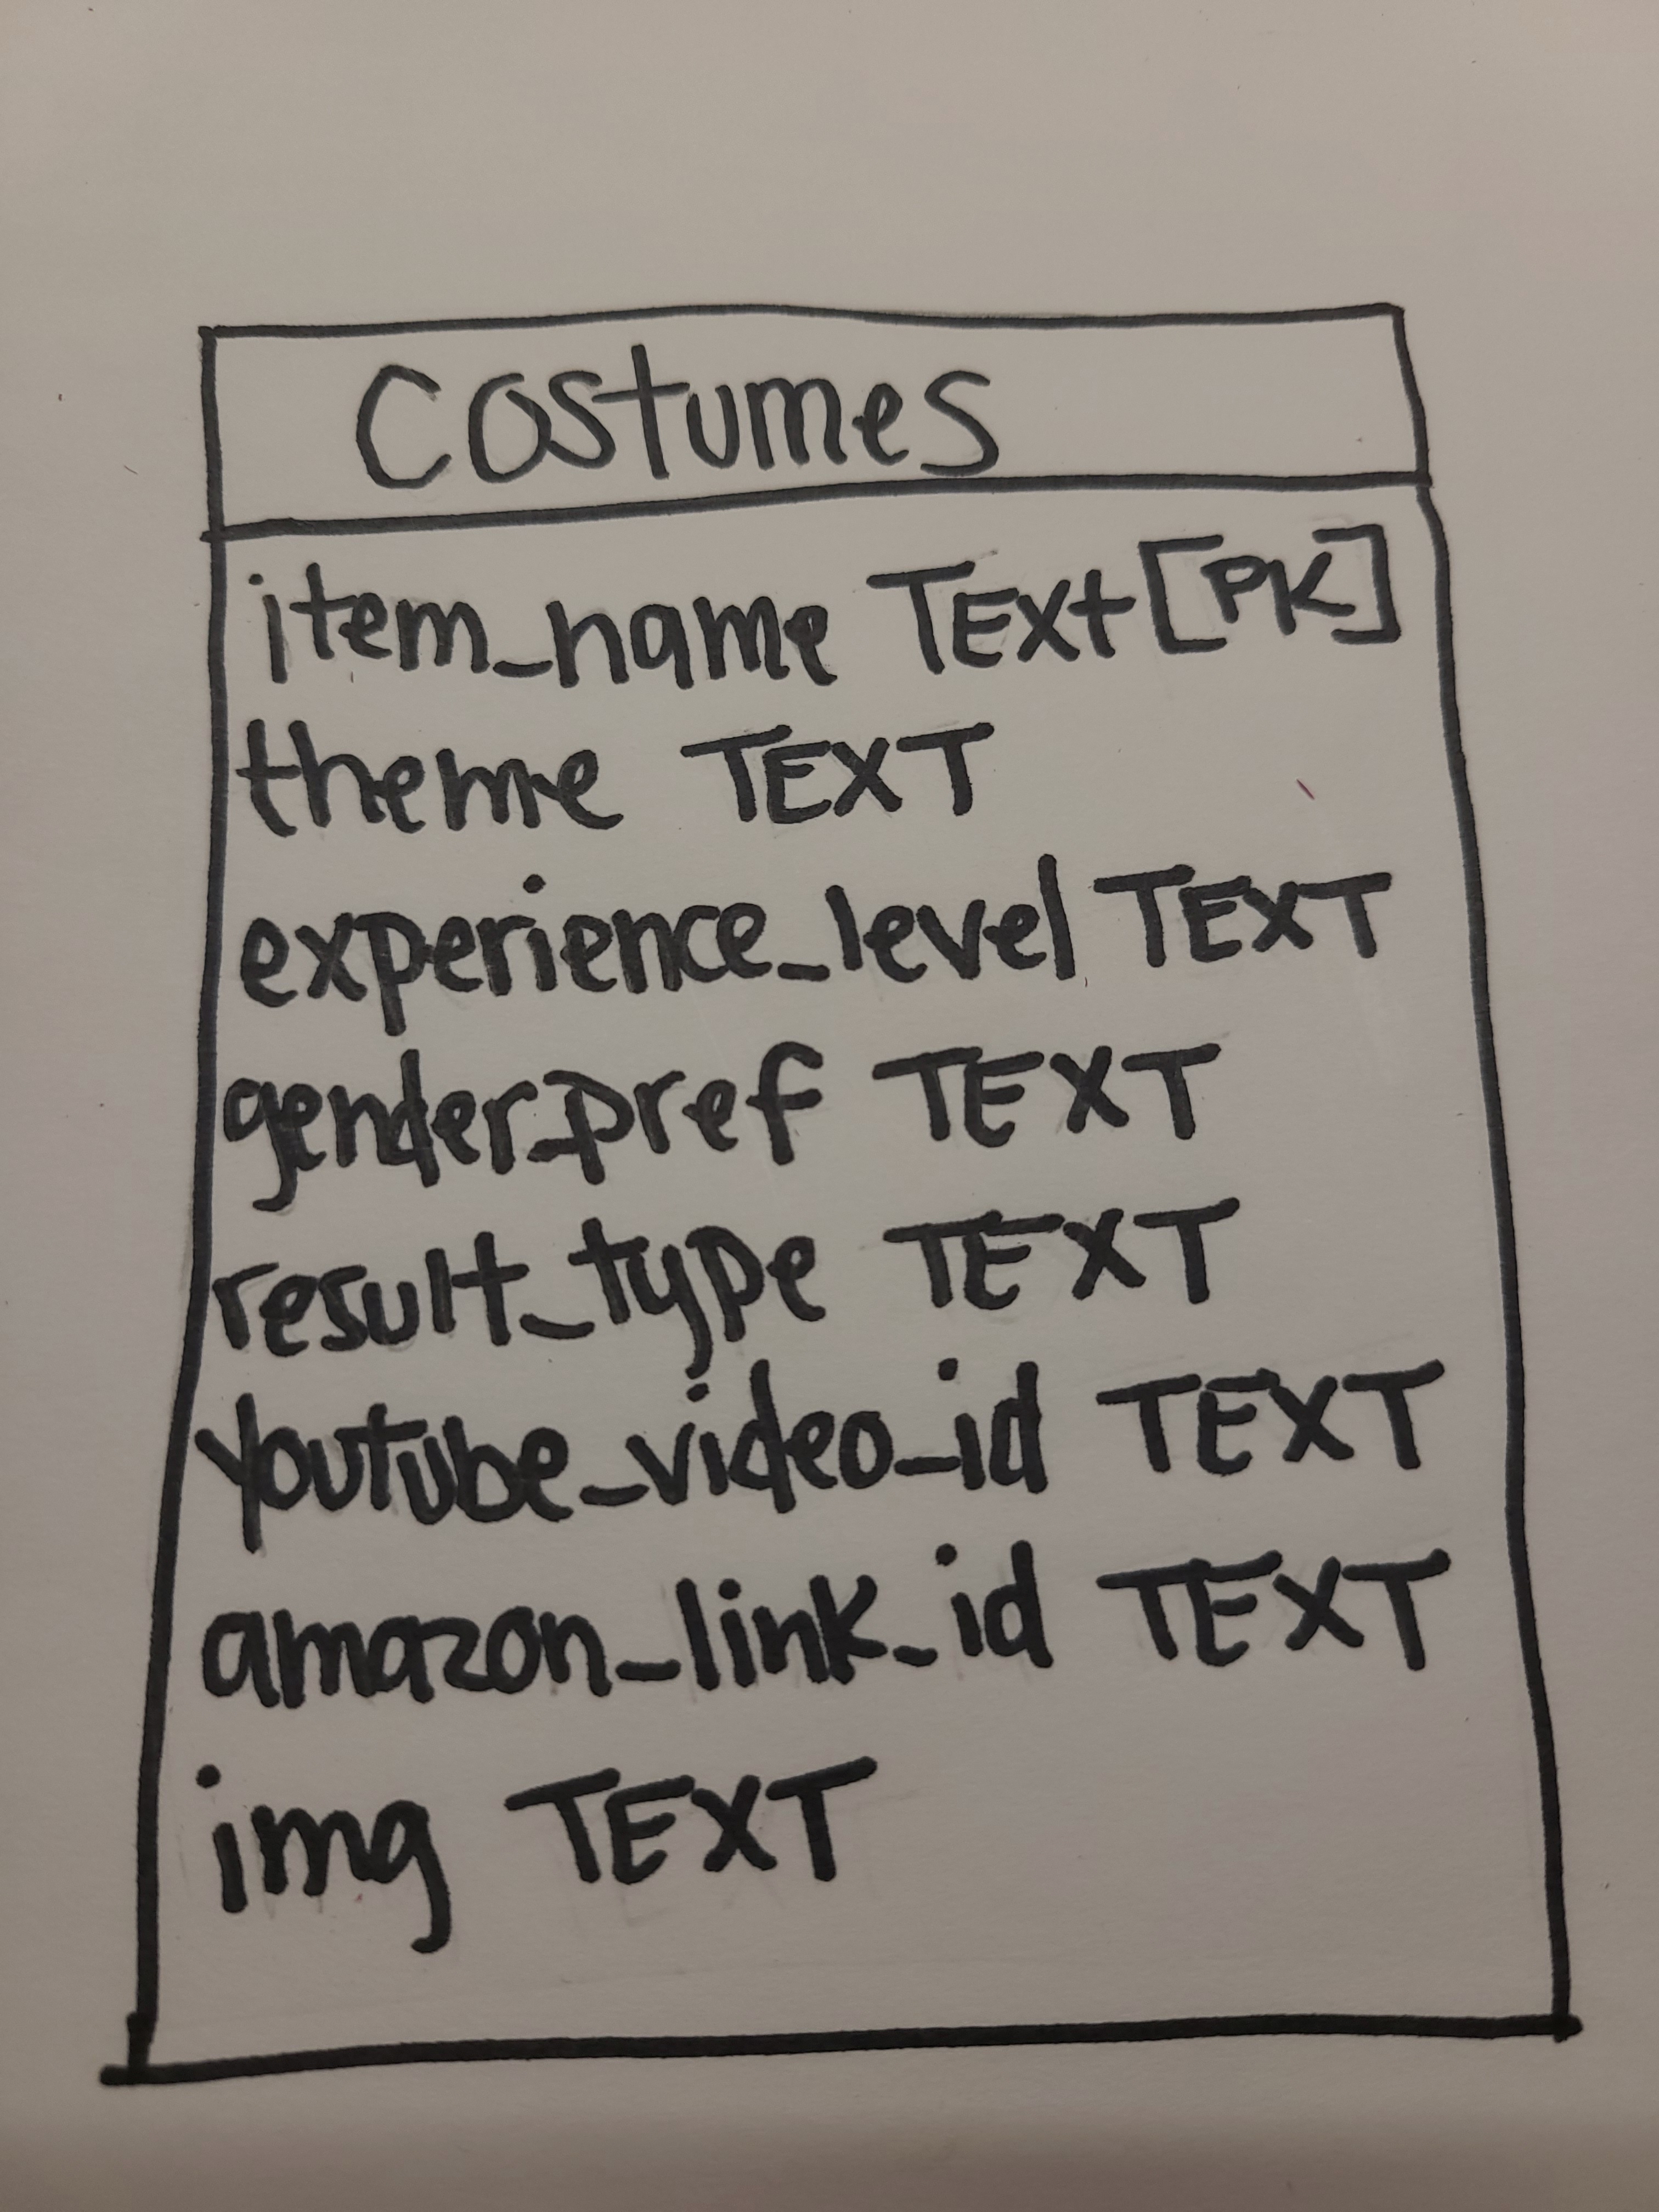 Costumes
item_name TEXt [PK]
theme TEXT
experience_level TEXT
gender_pref TEXT
result_type TEXT
youtube_video_id TEXT
amazon_link_id TEXT
img TEXT